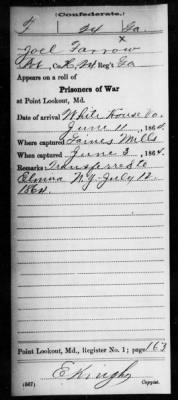 (Confederate.)
24 Ga.
Joel Farrow
Co. K, 24 Reg't Ga.
Appears on a roll of
Prisoners of War
at Point Lookout, Md.
Date of arrival White House Va.
June 11, 1864.
Where captured Gaines Mills
When captured June 3, 1864.
Remarks: Transferred to
Elmira N.Y. July 12
1864.
Point Lookout, Md., Register No. 1; page 163
Copyist.